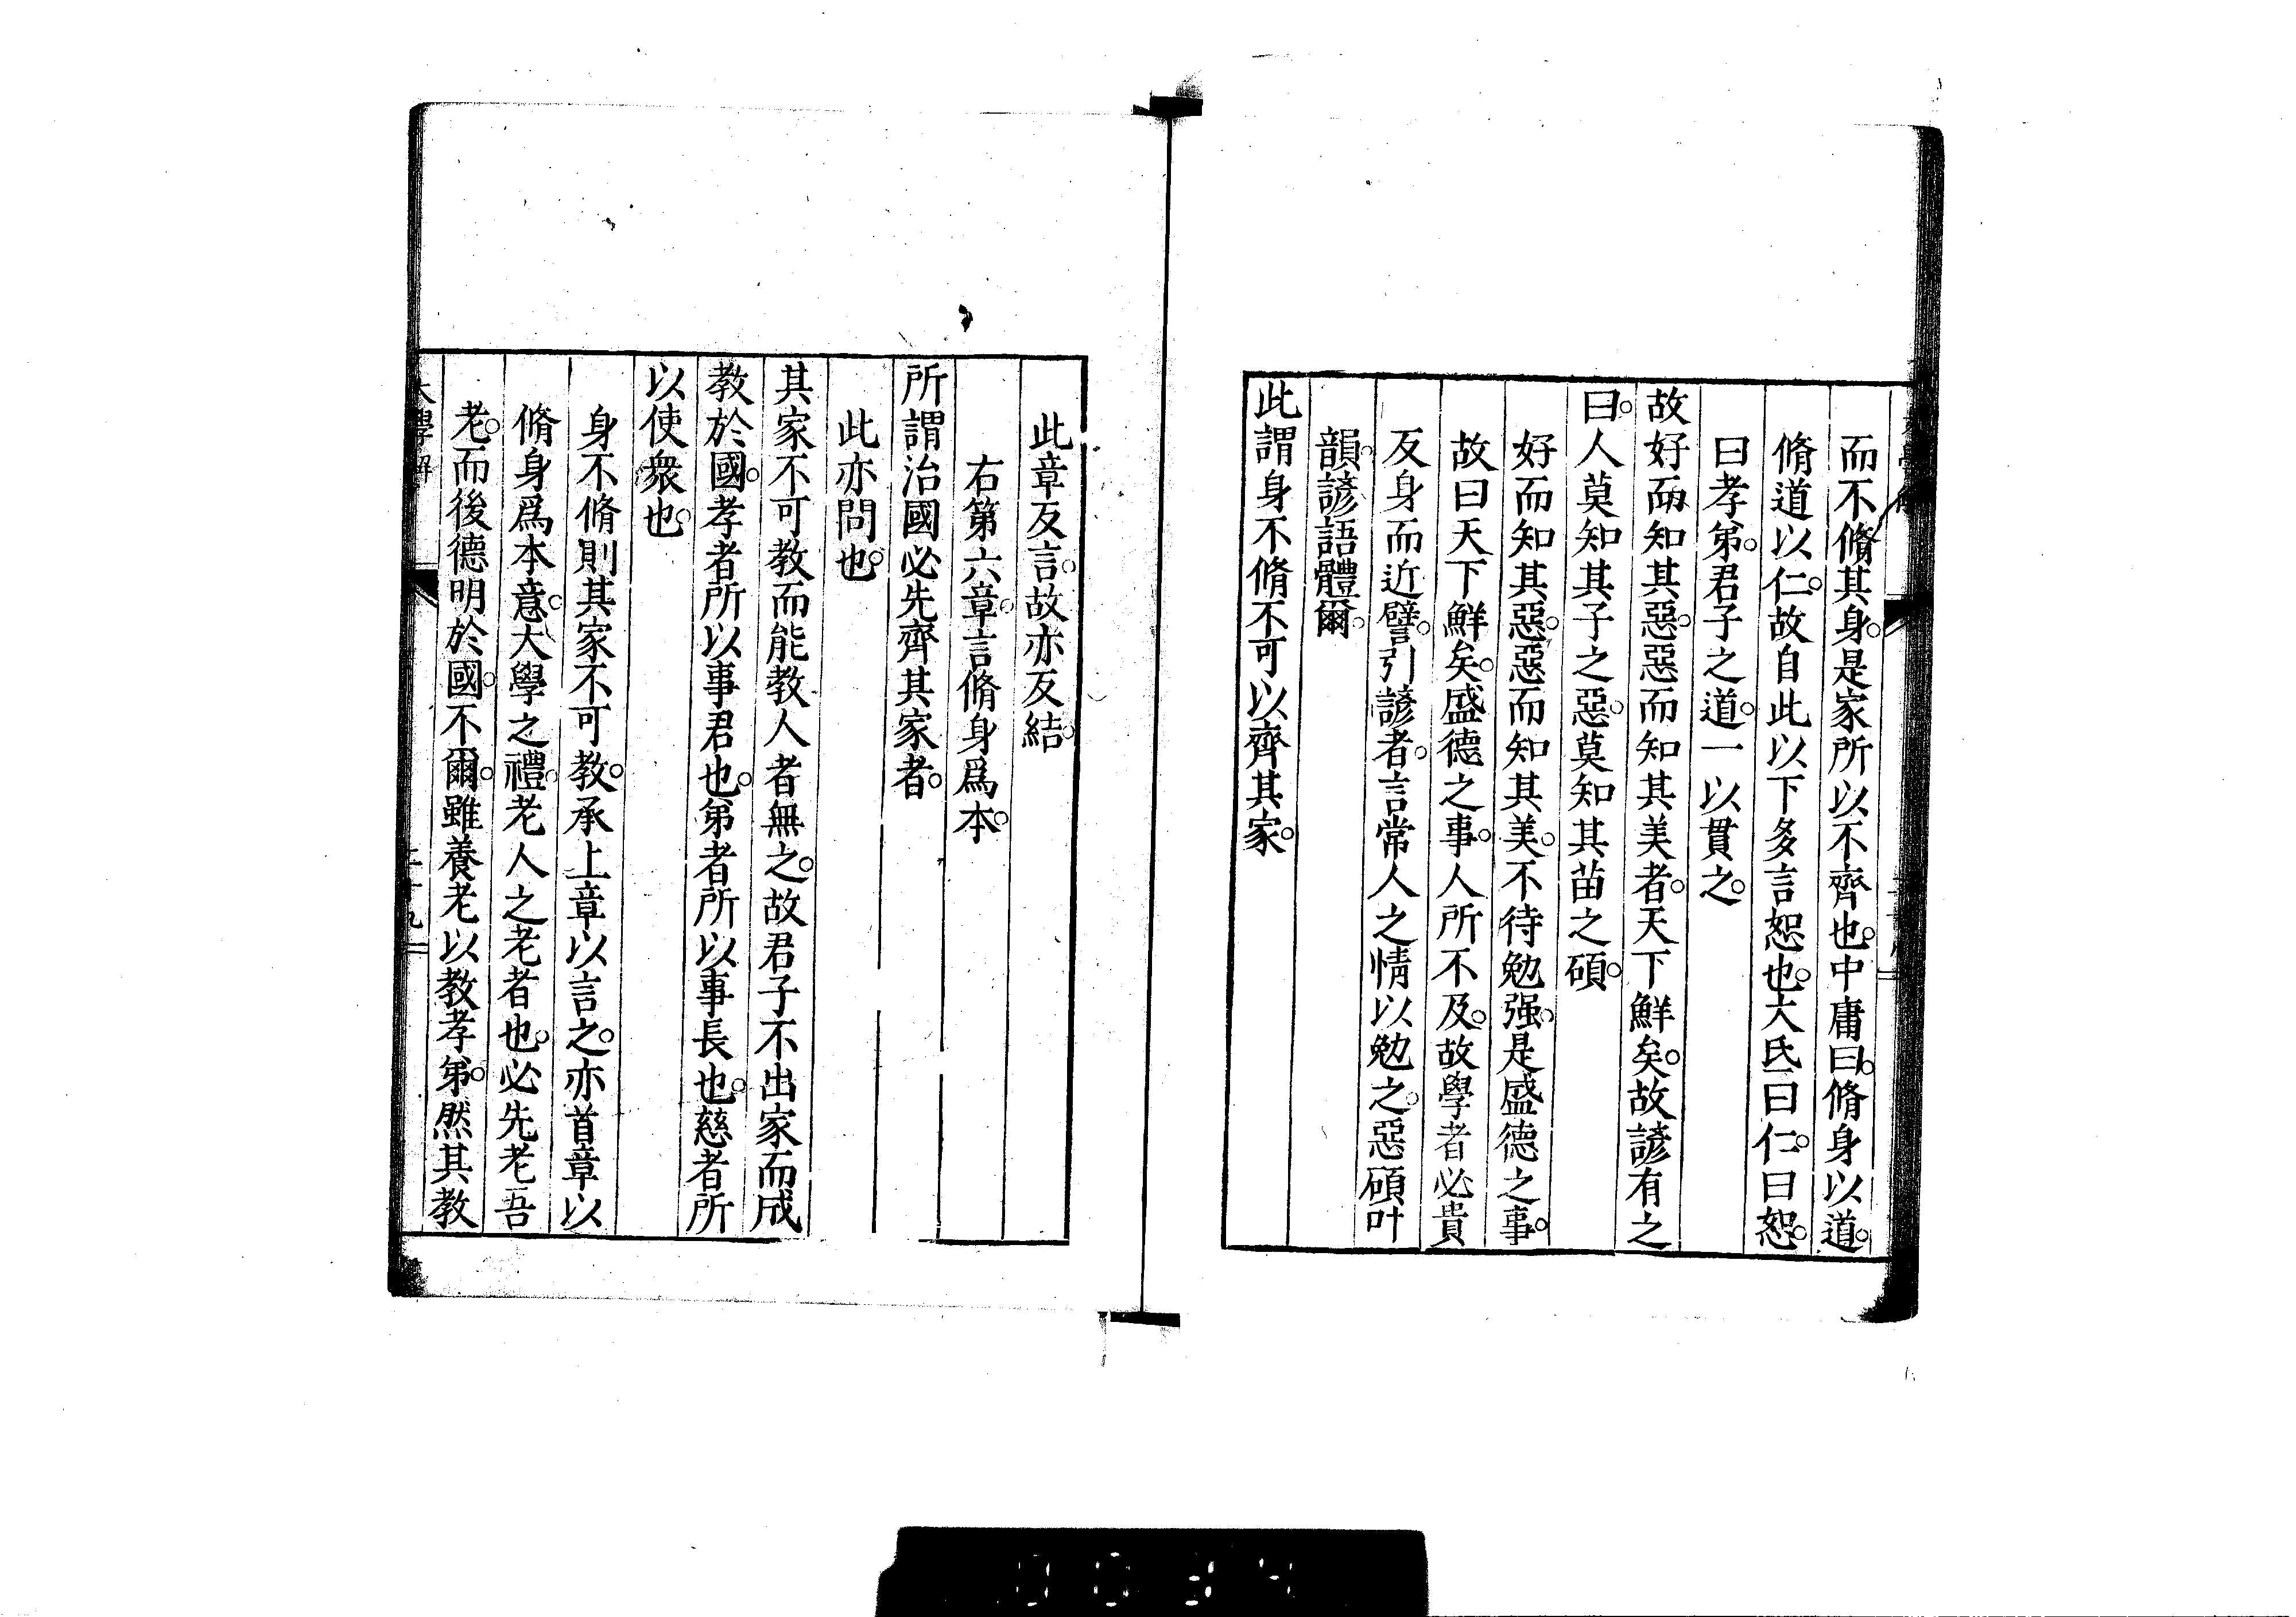 而不脩其身。是家所以不齊也。中庸曰。脩身以道。
脩道以仁。故自此以下多言恕也。大氐曰仁。曰恕。
曰孝弟。君子之道。一以貫之。
故好而知其惡。惡而知其美者。天下鮮矣。故諺有之
曰。人莫知其子之惡。莫知其苗之碩。
好而知其惡。惡而知其美。不待勉强。是盛德之事。
故曰天下鮮矣。盛德之事。人所不及。故學者必貴
反身而近譬。引諺者。言常人之情以勉之。惡碩叶
韻。諺語體爾。
此謂身不脩不可以齊其家。
此章反言。故亦反結。
右第六章。言脩身爲本。
所謂治國必先齊其家者。
此亦問也。
其家不可教而能教人者無之。故君子不出家而成
教於國。孝者所以事君也。弟者所以事長也。慈者所
以使衆也。
身不脩則其家不可教。承上章以言之。亦首章以
脩身爲本意。大學之禮。老人之老者也。必先老吾
老。而後德明於國。不爾。雖養老以教孝弟。然其教
大學解
二十九